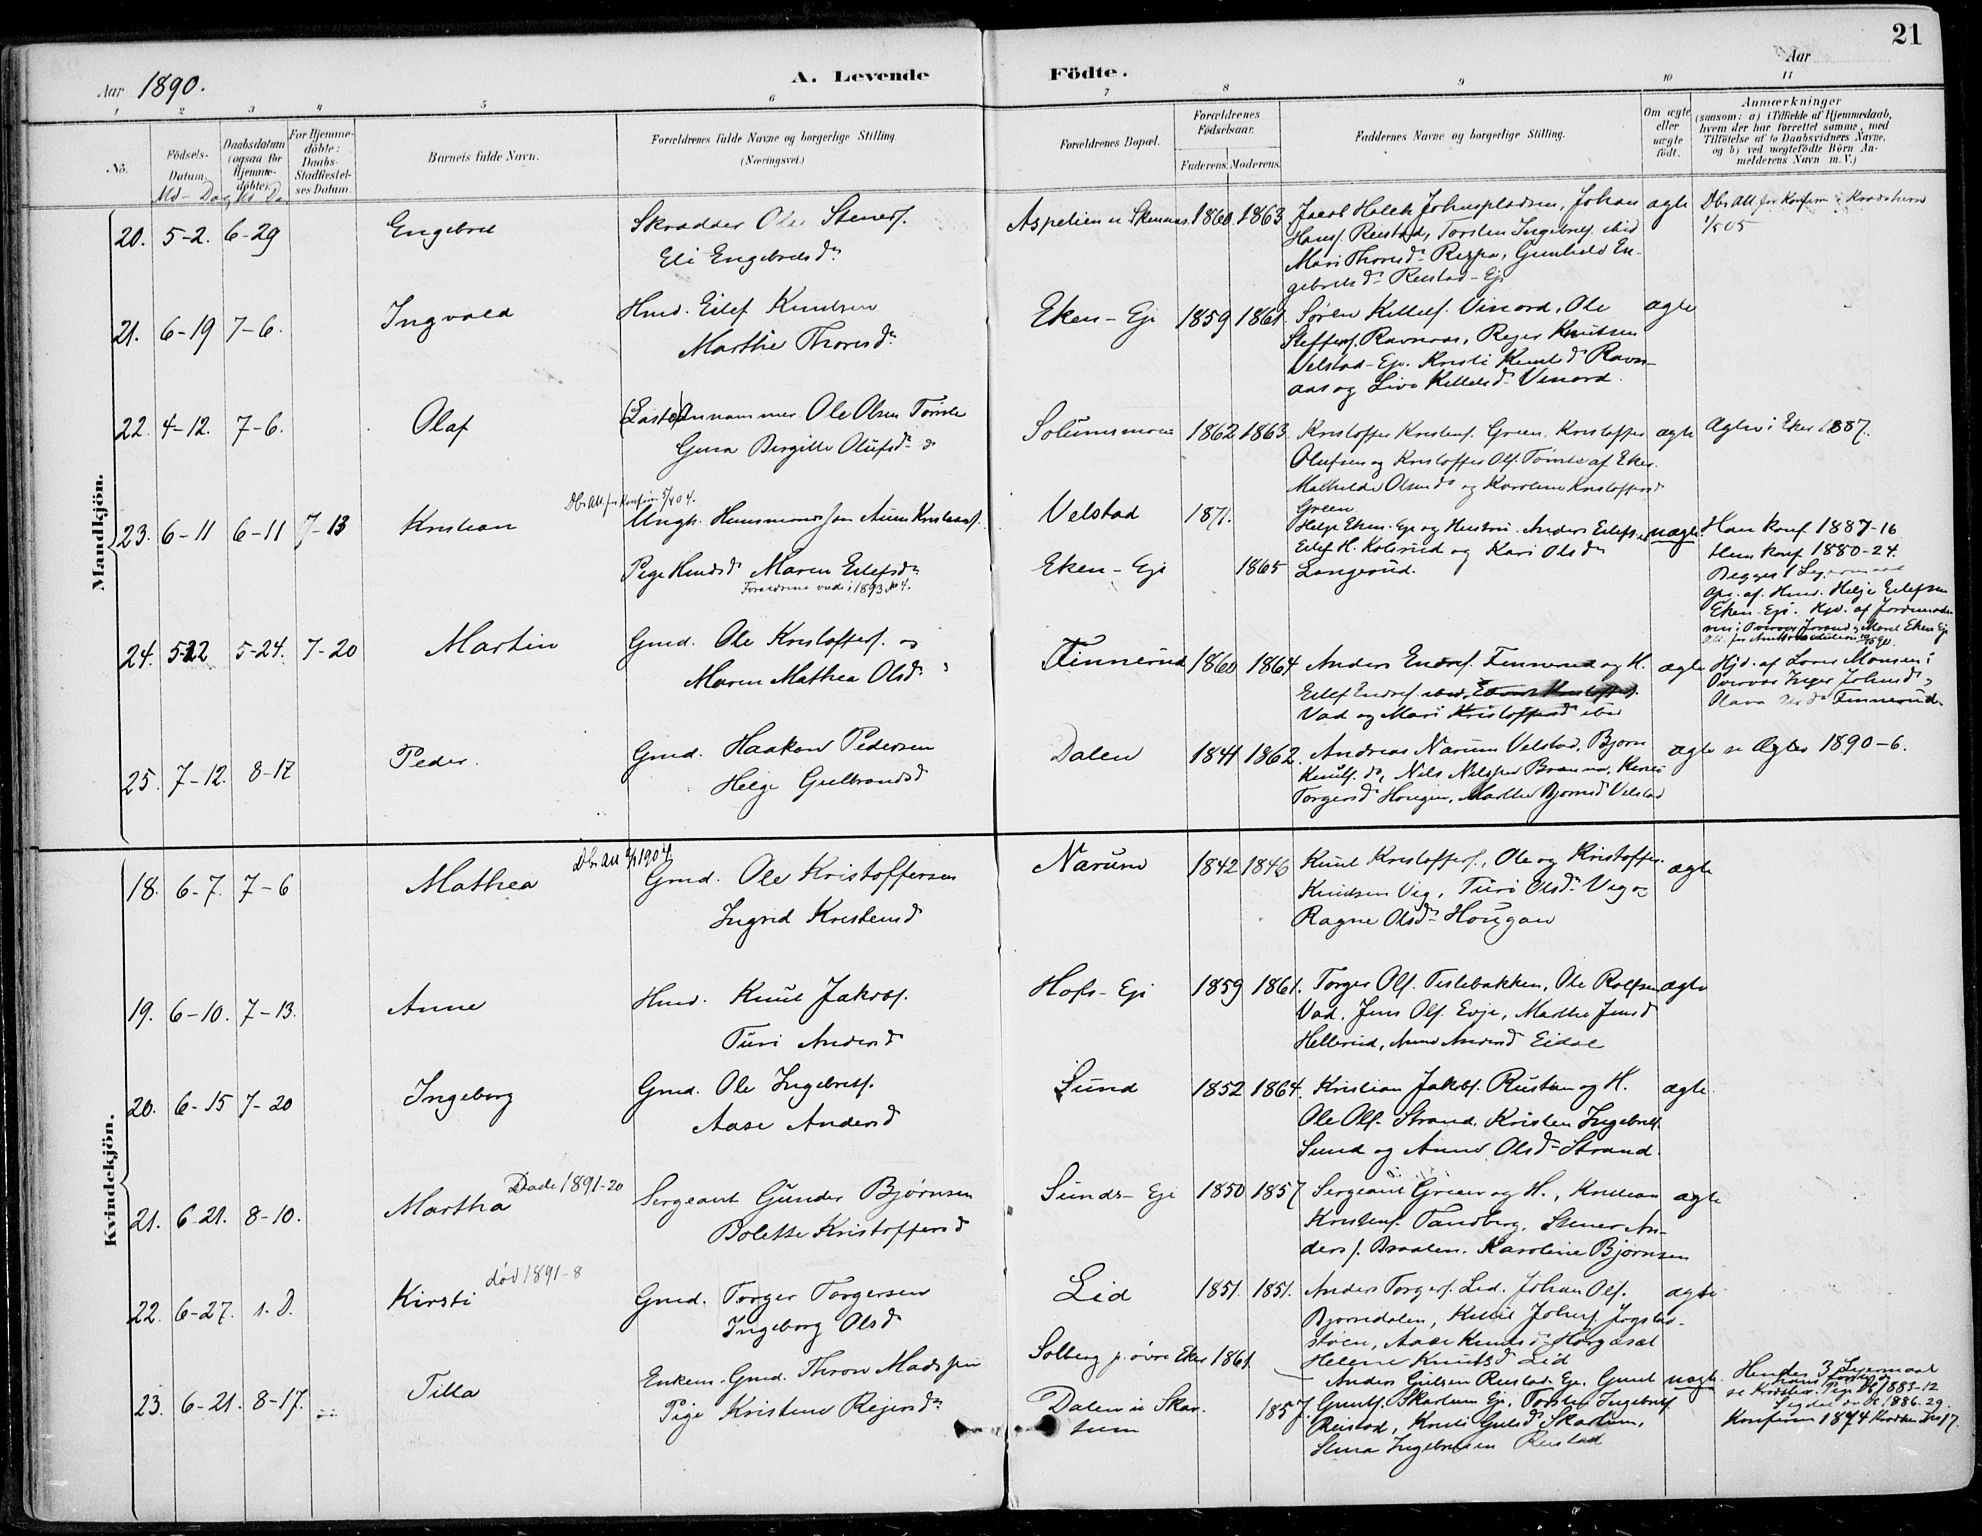 21
Aar 1890.
A. Levende Födte.
Aar
1 2 3 4 5 6 7 8 9 10 11
No.
Födsels-Datum.
Md - Dag
Daabsdatum (ogsaa for Hjemmedöbte).
Md Da
For Hjemmedöbte: Daabs-Stadfæstelses Datum.
Barnets fulde Navn.
Forældrenes fulde Navne og borgerlige Stilling.
(Næringsvei.)
Forældrenes Bopæl.
Forældrenes Födselsaar.
Faderens. Moderens.
Faddernes Navne og borgerlige Stilling.
Om ægte eller uægte födt.
Anmærkninger
(saasom: a) i Tilfælde af Hjemmedaab,
hvem der har forrettet samme, med
Tilföielse af to Daabsvidners Navne,
og b) ved uegtefödte Börn An-
melderens Navn m. V.)
Mandkjön.
20. 5-2. 6-29 Engebret
Skrædder Ole Steners.
Eli Engebretsdr
Aspelien u. Skennes 1860 1863
Jacob Holck Johnspladsen, Johan
Hans. Reistad, Torsten Ingebrets. ibid
Mari Thoresdr Reppa, Gunhild En-
gebretsdr Reistad-Ej.
ægte
Dbs.Att. for Konfirm. i Krødsherred
1/5 05
21. 6-19 7-6. Ingvald
Hmd. Eilef Knudsen
Marthe Thoresdr
Eken-Eje 1859 1861.
Søren Killels. Vinord, Ole
Steffens. Ravnaas, Rejer Knutsen
Velstad-Eje. Kristi Knutsdr Ravn-
aas og Live Killelsdr Vinord.
ægte
22. 4-12. 7-6. Olaf
Ole Olsen Tømte
Gina Birgitte Olufsdr
Solumsmoen 1862 1863.
Kristoffer Kristens. Green. Kristoffer
Olufsen og Kristoffer Ols. Tømte af Eker.
Mathilde Olsens og Karoline Kristoffersd
Green
ægte
Ægtev. i Eker 1887.
23. 6-11 6-11 7-13 Kristian
Dbs.Att. for Konfirm 5/4 04.
Ungk. Husmandssøn Anun Kristians.
Pige Hmdsdr Maren Eilefsdr
Forældrene viede i 1893 No 4.
Velstad 1871.
Eken-Eje 1865
Helge Eken-Eje og Hustru. Anders Eilefsen
Eilef H. Kolsrud og Kari Olsdr
Langerud.
uægte
Han konf 1887-16
Hun konf. 1880-24.
Begges 1 Leiermaal
Opg. af Hmd. Helje Eilefsen
Eken-Eje. Hjd. af Jordmoderen
24. 5-22 5-24. 7-20 Martin
Gmd. Ole Kristoffers. og
Maren Mathea Olsdr
Finnerud 1860 1864
Anders Endres. Finnerud og H.
Eilef Endres. ibid,
Vad og Mari Kristoffersd ibid
ægte
Hjd. af Lars Monsen i
Overvær Inger Johnsd
Olava Finnerud.
25. 7-12. 8-17 Peder.
Gmd. Haakon Pedersen
Helge Gulbrandsd
Dalen 1841 1862.
Andreas Narum Velstad, Bjørn
Knuts. do, Nils Nilssen Braunes, Kirsti
Torgersd Hougen, Marthe Bjørnsd Velstad
ægte
se Ægtev 1890-6.
Kvindekjön.
18. 6-7. 7-6 Mathea
Gmd. Ole Kristoffersen
Ingrid Kristensd
Narum 1842 1846
Knut Kristoffers., Ole og Kristoffer
Knudsen Vig, Turi Olsdr Vig og
Ragne Olsdr Hougan
ægte
19. 6-10. 7-13. Anne
Hmd. Knut Jakobs.
Turi Andersd
Hofs-Eje 1859 1861.
Torger Ols. Tislebakken, Ole Rolfsen
Vad. Jens Ols. Evje, Marthe Jensd
Hellerud, Anne Andersd Eidal
ægte
20. 6-15 7-20 Ingeborg
Gmd. Ole Ingebrets.
Aase Andersd
Sund 1852 1864.
Kristian Jakobs. Rustan og H.
Ole Ols. Strand. Kristen Ingebrets.
Sund og Anne Olsdr Strand.
ægte.
21. 6-21. 8-10. Martha Døde 1891-20
Sergeant Gunder Bjørnsen
Bolette Kristoffersd
Sunds-Eje 1850 1857
Sergeant Green og H., Kristian
Kristens. Tandberg, Stener An-
ders. Braaten. Karoline Bjørnsen
ægte
22. 6-27. s.D. Kirsti død 1891-8
Gmd. Torger Torgersen
Ingeborg Olsd
Lid 1851. 1851.
Anders Torgers. Lid. Johan Ols.
Bjørndalen, Knut Johns. Jogstad-
støen, Aase Knutsdr Horgaset
Helene Knutsd Lid
ægte
23. 6-21. 8-17. Tilla
Enkem. Gmd. Thron Madssen
Pige Kristine Reiersdr
Solberg p. øvre Eker 1861.
Dalen u. Skar-
tum 1857.
Anders Gulsen Reistad Eje. Gunl
Gunts. Skartum Ej, Torsten Ingebrets.
Reistad, Kristi Gulsdr Skartum,
Stina Ingebretsen Reistad
uægte
Hendes 3 Leiermaal
se Krødsher. Pige No 1883-12
Sigdal do 1886-29.
Konfirm 1874 Krødsh No 17.